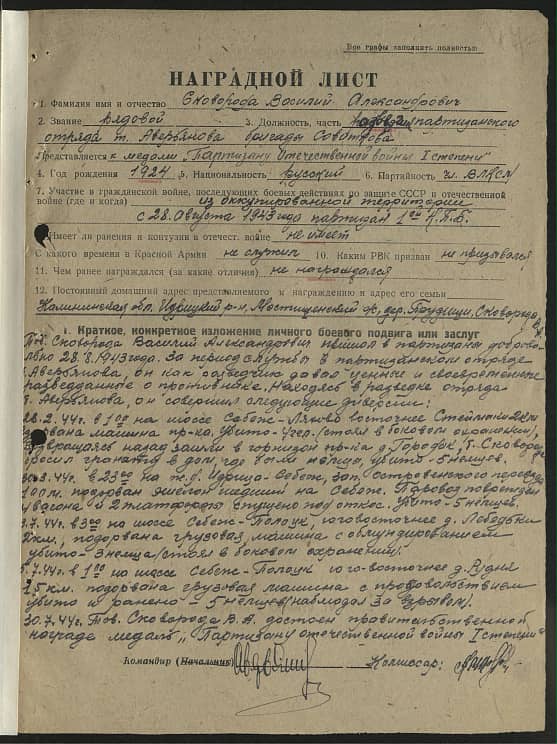 Все графы заполнять полностью
НАГРАДНОЙ ЛИСТ
1. Фамилия имя и отчество Сковорода Василий Александрович
2. Звание рядовой 3. Должность, часть партизанского
отряда т. Аверьянова бригады
Представляется к медали „Партизану Отечественной войны I степени"
4. Год рождения 1924 5. Национальность русский 6. Партийность чл. ВЛКСМ
7. Участие в гражданской войне, последующих боевых действиях по защите СССР и отечественной
войне (где и когда) из оккупированной территории
с 28. Августа 1943 года партизан 1ой К.П.Б.
Имеет ли ранения и контузии в отечест. войне не имеет
С какого времени в Красной Армии не служил 10. Каким РВК призван не призывался
11. Чем ранее награждался (за какие отличия) не награждался
12. Постоянный домашний адрес представляемого к награждению и адрес его семьи
Калининская обл. Идрицкий р-н, Мостищенский с/с, дер. Сковорода
I. Краткое, конкретное изложение личного боевого подвига или заслуг
Тов. Сковорода Василий Александрович пришел в партизаны доброво-
льно 28.8.1943 года. За период службы в партизанском отряде
Аверьянова, он как разведчик давал ценные и своевременные
разведданные о противнике. Находясь в разведке отряда
т. Аверьянова, он совершил следующие диверсии:
28.2.44г. в 1 00 на шоссе Себеж-Лявово восточнее 2км
взорвана машина пр-ка, убито-4чел. (стоял в боковом охранении),
возвращаясь назад зашли в гарнизон пр-ка д. Городок, т. Сковорода
бросил гранату в дом, где немцы, убито-5немцев.
3.44г. в 23 00 на ж.д. Идрица-Себеж, зап. Островенского переезда
100 м. подорван эшелон шедший на Себеж. Паровоз поврежден
4 вагона и 2 платформы спущено под откос. Убито-5немцев.
3.7.44г. в 3 00 на шоссе Себеж-Полоцк, юговосточнее д.
2км., подорвана грузовая машина с обмундированием
убито-3немца (стоял в боковом охранении).
5.7.44г. в 1 00 на шоссе Себеж-Полоцк юго-восточнее д. Рудня
1,5 км. подорвана грузовая машина с продовольствием
убито и ранено-5немцев (наблюдал за взрывом).
30.7.44г. Тов. Сковорода В.А. достоен правительственной
награде медаль „Партизану отечественной войны I степени"
Командир (Начальник) Комиссар: